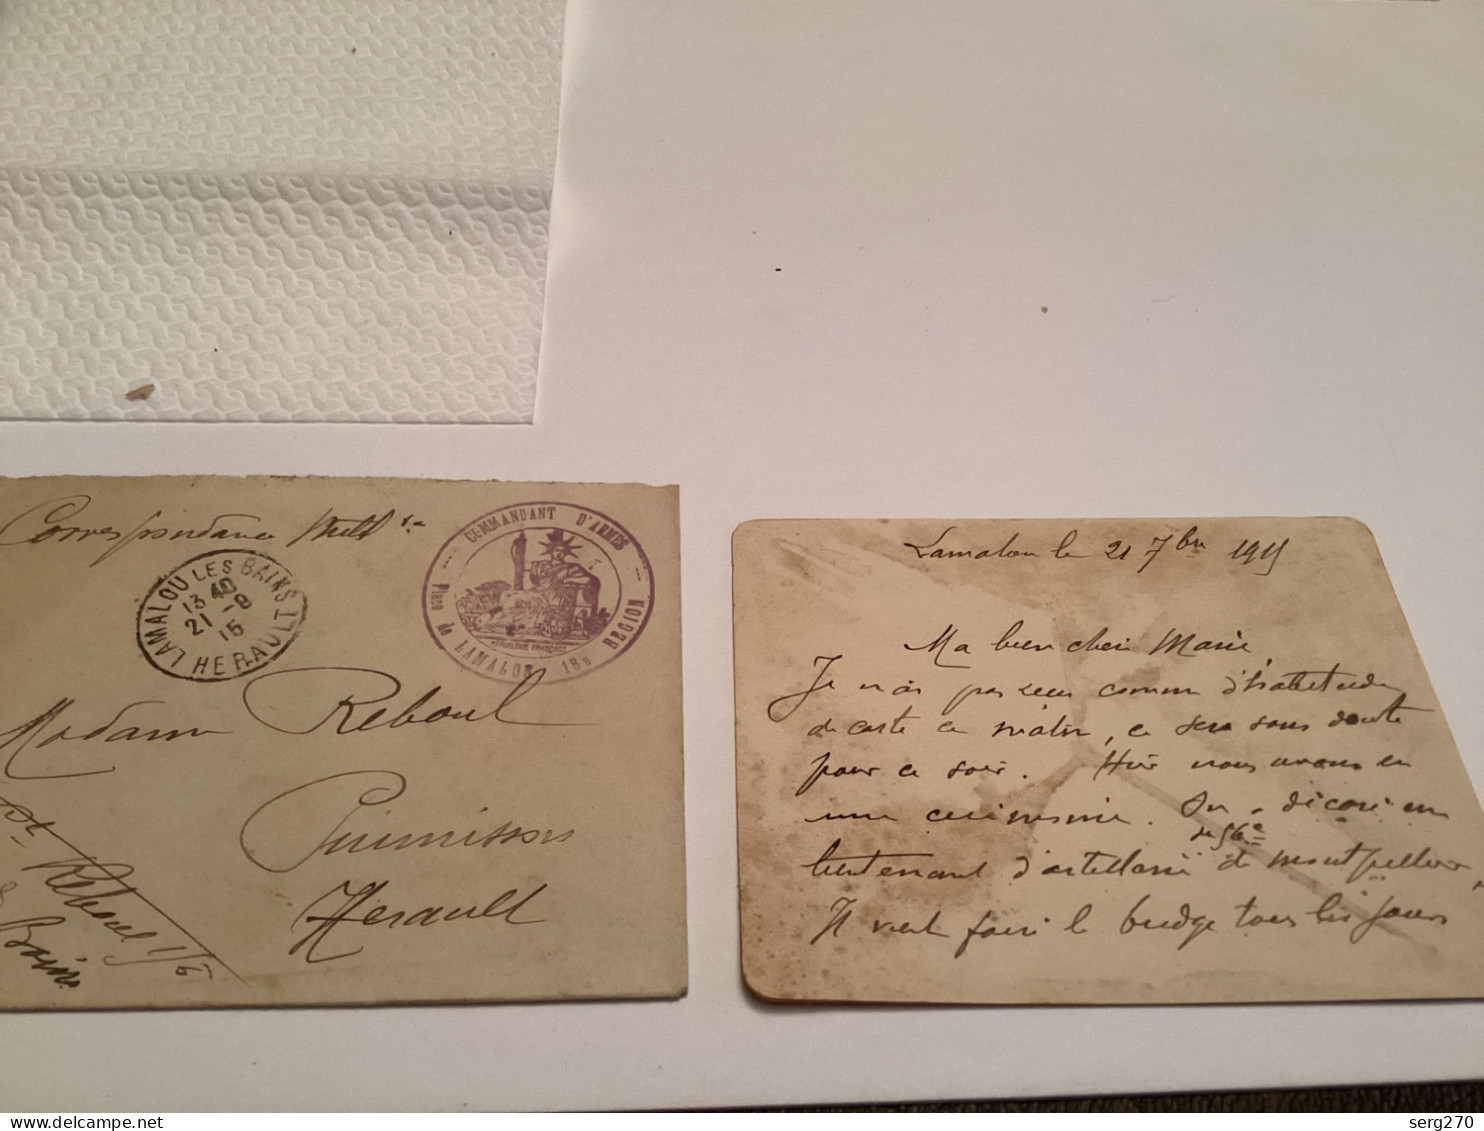 Correspondance Milit re
LAMALOU LES BAINS
13 40
21 - 9
15
HERAULT
COMMANDANT D'ARMES
Place de LAMALOU 16e REGION
REPUBLIQUE FRANÇAISE
Madame Reboul
Puimisson
Hérault
Reboul
Lamalou le 21 7bre 1915
Ma bien chère Marie
Je n'ai pas reçu comme d'habitude
de carte ce matin, ce sera sans doute
pour ce soir. Hier nous avons eu
une cérémonie. On a décoré un
du 56e
lieutenant d'artillerie de Montpellier,
Il vient faire le bridge tous les jours
serg270
delcampe.net